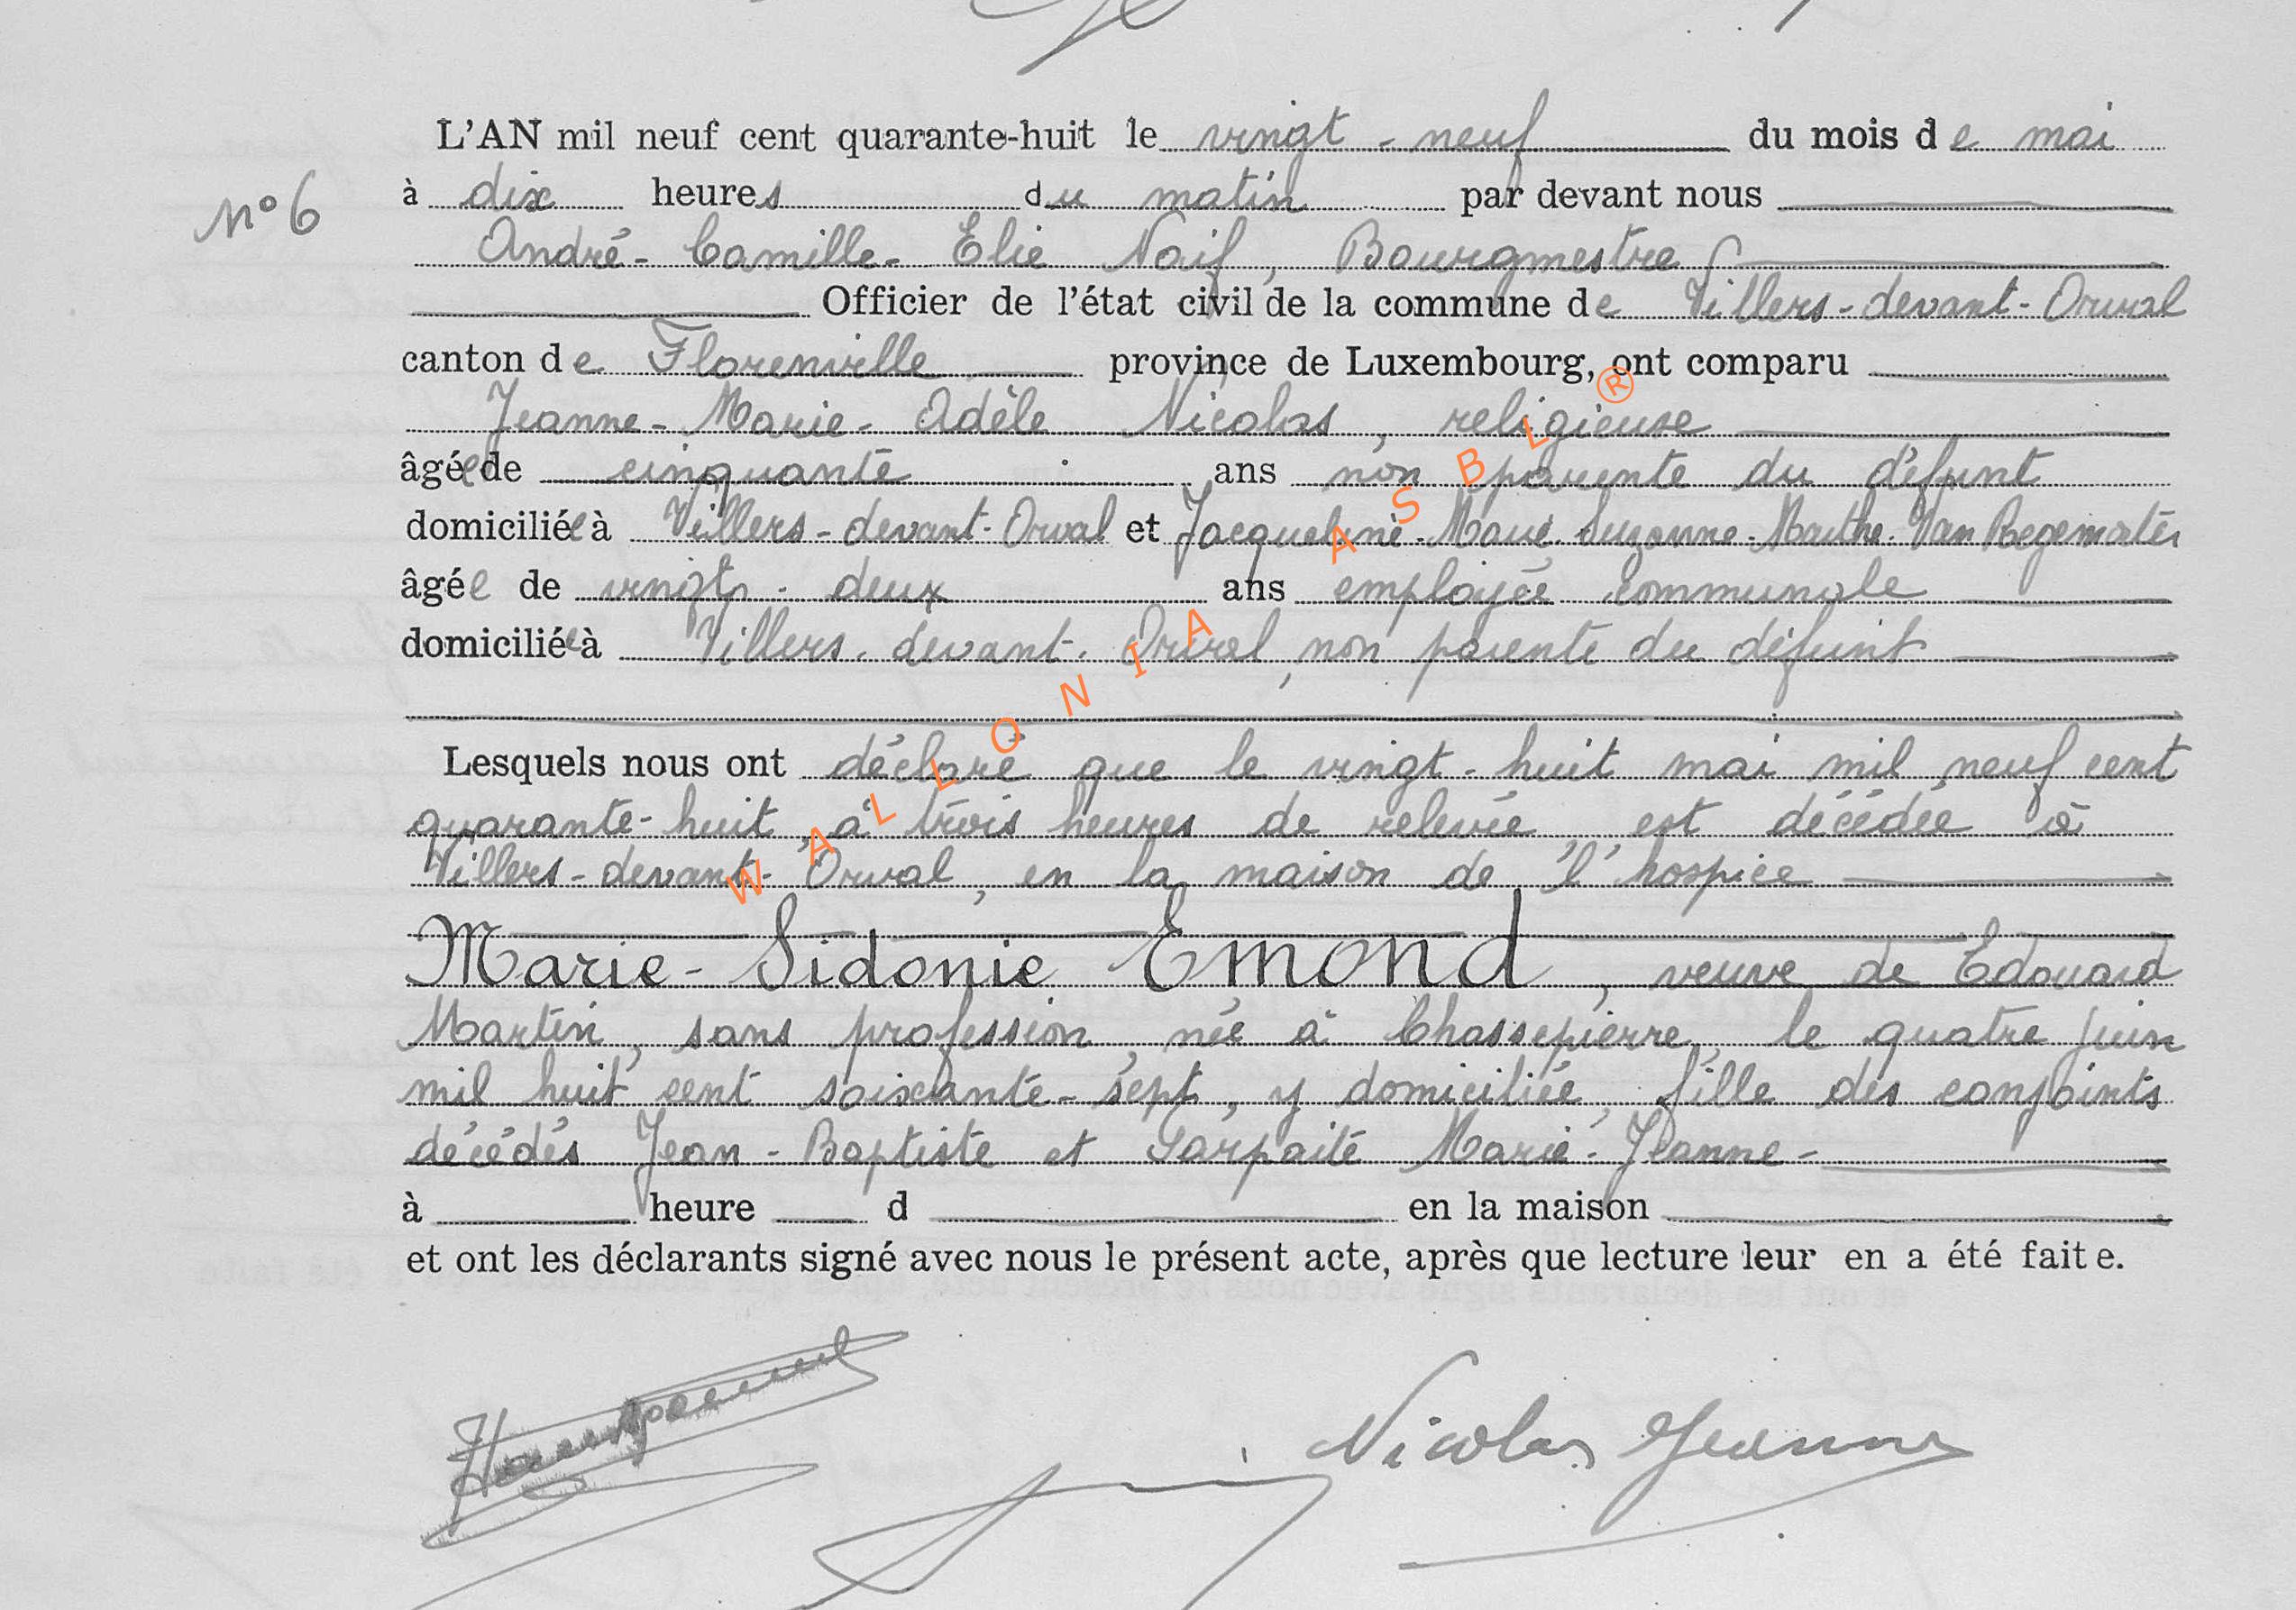 L'AN mil neuf cent quarante-huit le vingt-neuf du mois de mai
N° 6
à dix heures du matin par devant nous
André-Camille-Elie Naif, Bourgmestre
Officier de l'état civil de la commune de Villers-devant-Orval
canton de Florenville province de Luxembourg, ont comparu
Jeanne-Marie-Adèle Nicolas, religieuse
âgée de cinquante ans non parente du défunt
domiciliée à Villers-devant-Orval et Jacqueline-Marie-Suzanne-Marthe-Van Regemater
âgée de vingt-deux ans employée communale
domiciliée à Villers-devant-Orval, non parente du défunt
Lesquels nous ont déclaré que le vingt-huit mai mil neuf cent
quarante-huit, à trois heures de relevée, est décédée à
Villers-devant-Orval, en la maison de l'hospice
Marie-Sidonie Emond, veuve de Edouard
Martin, sans profession, née à Chassepierre, le quatre juin
mil huit cent soixante-sept, y domiciliée, fille des conjoints
décédés Jean-Baptiste et Parpaite Marie-Jeanne-
à heure d en la maison
et ont les déclarants signé avec nous le présent acte, après que lecture leur en a été faite.
Nicolas Jeanne
WALLONIA ASBL ®